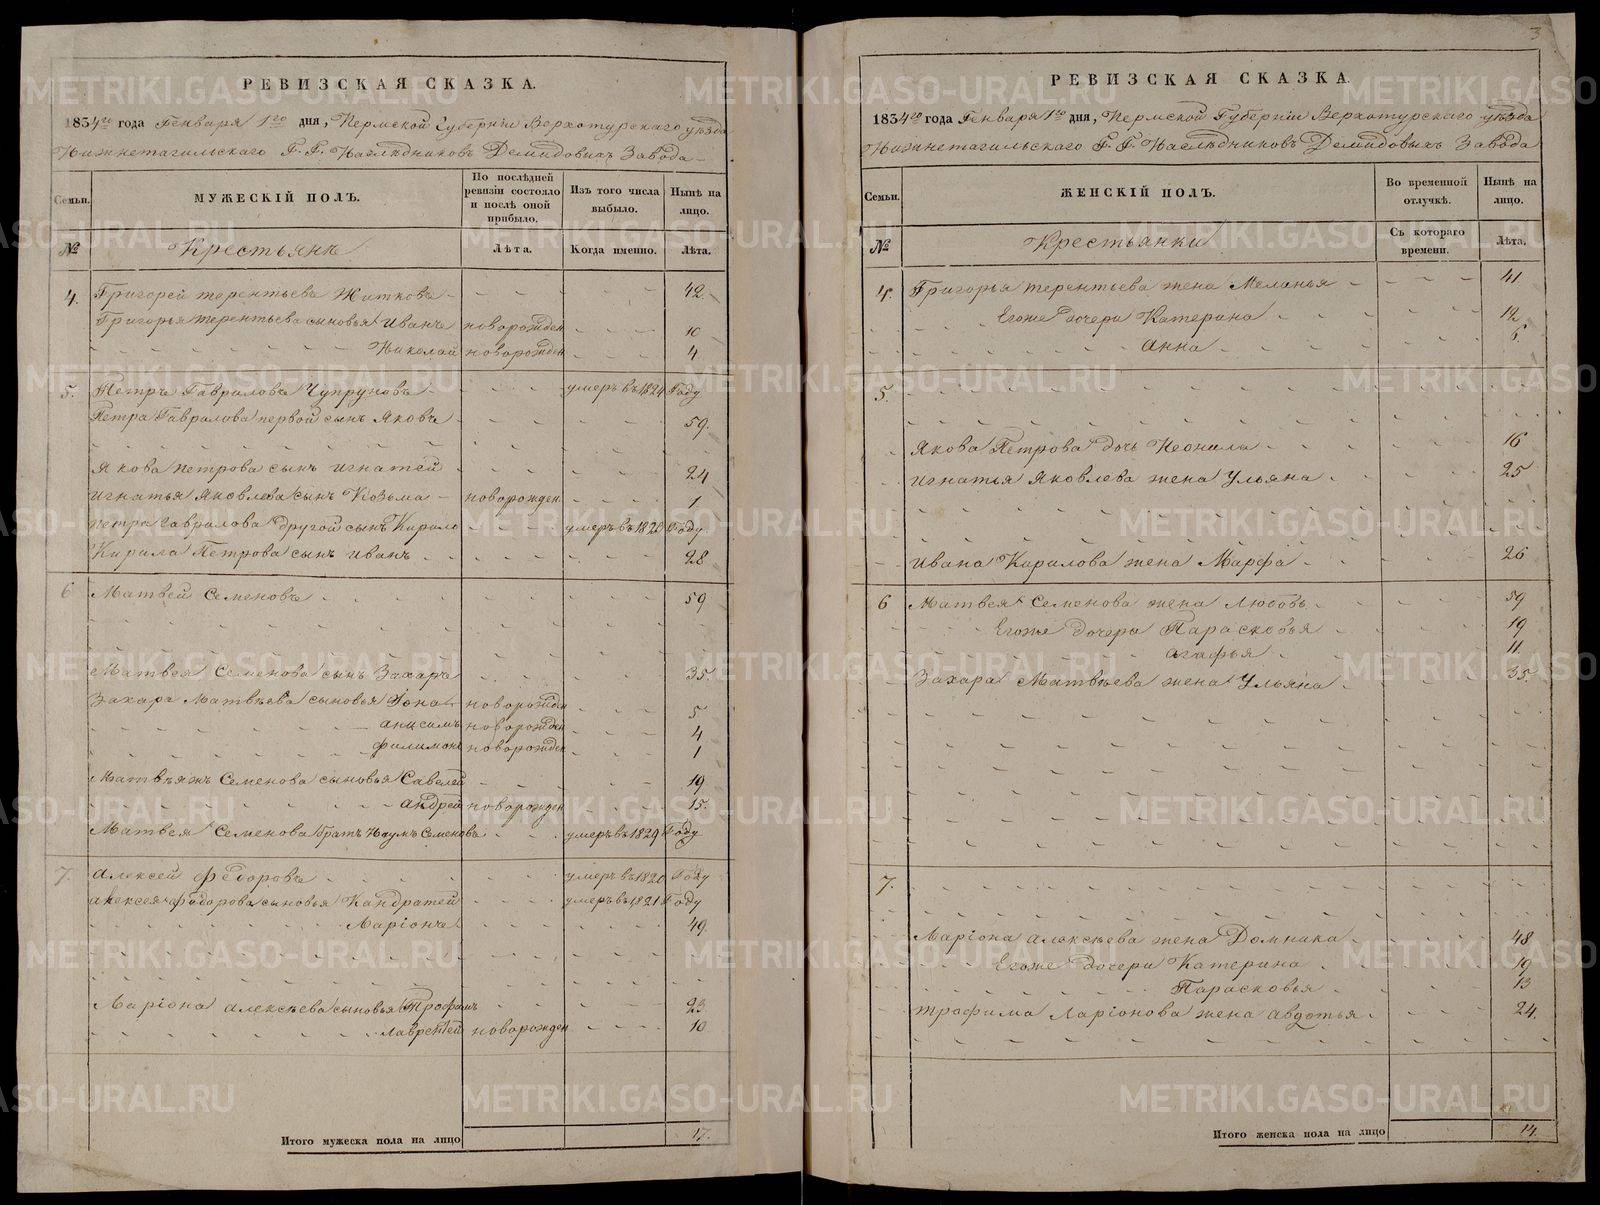 РЕВИЗСКАЯ СКАЗКА.
1834го года Генваря 1го дня, Пермской Губернiи Верхотурскаго уѣзда
Нижнетагильскаго Г.Г. Наслѣдниковъ Демидовыхъ Завода
Семьи.
МУЖЕСКIЙ ПОЛЪ.
По послѣдней ревизiи состояло и послѣ оной прибыло.
Изъ того числа выбыло.
Нынѣ на лицо.
№
Крестьянъ
Лѣта.
Когда именно.
Лѣта.
4. Григорей терентьевъ Житковъ 42.
Григорья терентьева сыновья Иванъ новорожден 10
Николай новорожден 4
5. Петръ Гавриловъ Чупруновъ умеръ въ 1824 Году
Петра Гаврилова первой сынъ Яковъ 59.
Якова петрова сынъ игнатей 24
игнатья Яковлева сынъ Козьма новорожден 1
петра гаврилова другой сынъ Кирило умеръ въ 1820 Году
Кирила Петрова сынъ иванъ 28
6 Матвей Семеновъ 59
Матвея Семенова сынъ Захаръ 35.
Захара Матвѣева сыновья Iона новорожден 5
анисимъ новорожден 4
филимонъ новорожден 1
Матвѣяжъ Семенова сыновья Савелей 19
андрей новорожден 15.
Матвея Семенова братъ Наумъ Семеновъ умеръ въ 1829 Году
7. алексей федоровъ умеръ въ 1820 Году
алексея федорова сыновья Кандратей умеръ въ 1821 Году
Ларiонъ 49.
Ларiона алексѣева сыновья Трофимъ 23.
лаврентей новорожден 10
Итого мужеска пола на лицо 17.
3
РЕВИЗСКАЯ СКАЗКА.
1834го года Генваря 1го дня, Пермской Губернiи Верхотурскаго уѣзда
Нижнетагильскаго Г.Г. Наслѣдниковъ Демидовыхъ Завода
Семьи.
ЖЕНСКIЙ ПОЛЪ.
Во временной отлучкѣ.
Нынѣ на лицо.
№
Крестьянки
Съ котораго времени.
Лѣта.
4. Григорья терентьева жена Меланья 41
Егоже дочери Катерина 12.
анна 6
5.
Якова Петрова дочь Неонила 16
игнатья Яковлева жена Ульяна 25
ивана Кирилова жена Марфа 26
6 Матвея Семенова жена Любовь 59
Егоже дочери Парасковья 19
агафья 11
Захара Матвѣева жена Ульяна 35
7.
Ларiона алексѣева жена Домника 48
Егоже дочери Катерина 19
Парасковья 13
трофима Ларiонова жена авдотья 24.
Итого женска пола на лицо 14.
METRIKI.GASO-URAL.RU